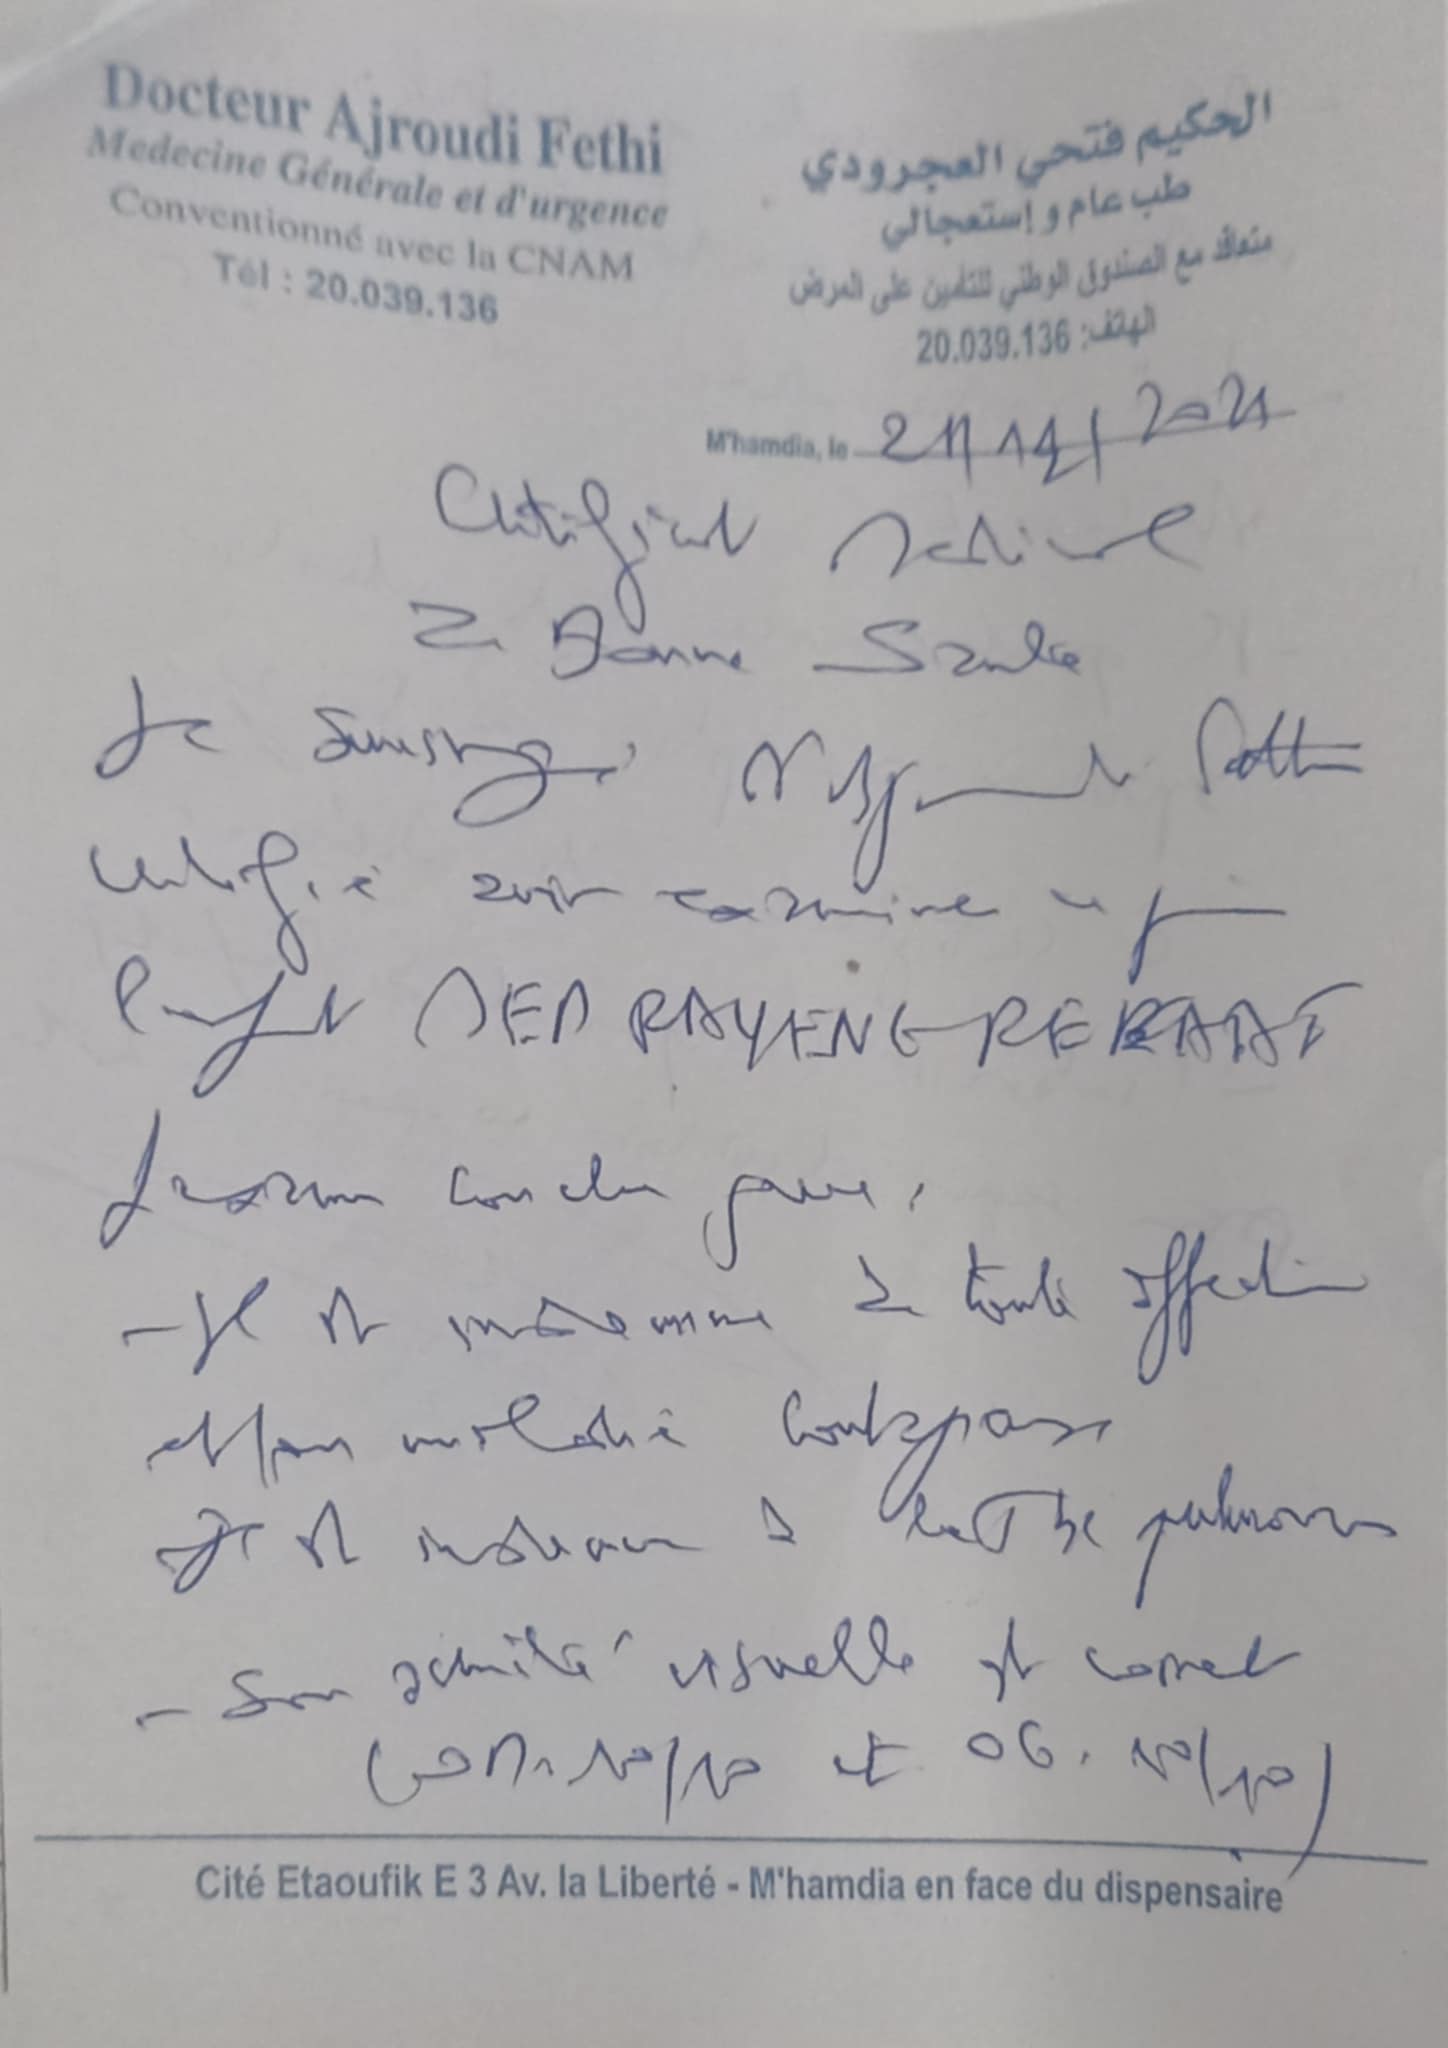 Docteur Ajroudi Fethi
Medecine Générale et d'urgence
Conventionné avec la CNAM
Tél : 20.039.136
الحكيم فتحي العجرودي
طب عام و إستعجالي
متعاقد مع الصندوق الوطني للتأمين على المرض
الهاتف: 20.039.136
M'hamdia, le 21/12/2021
Certificat Médical
De Bonne Santé
Je soussigné, Dr Ajroudi Fethi
certifie avoir examiné ce jour
l'enfant MED RAYEN
L'examen conclu que :
- Il est indemne de toute affection
et/ou maladie contagieuse
Il est indemne de la TBC pulmonaire
- Son acuité visuelle est correcte
(OD. 10/10 et OG. 10/10)
Cité Etaoufik E 3 Av. la Liberté - M'hamdia en face du dispensaire